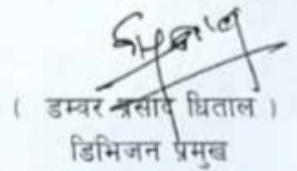 ( डम्वर प्रसाद धिताल )
डिभिजन प्रमुख